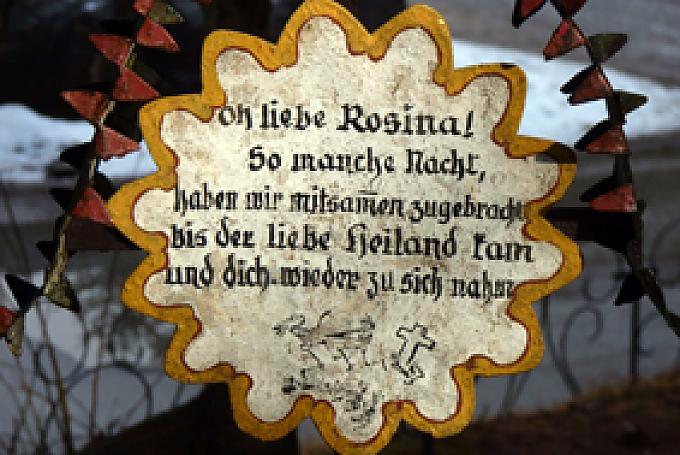 Oh liebe Rosina!
So manche Nacht,
haben wir mitsam̅en zugebracht
bis der liebe Heiland kam
und dich wieder zu sich nahm